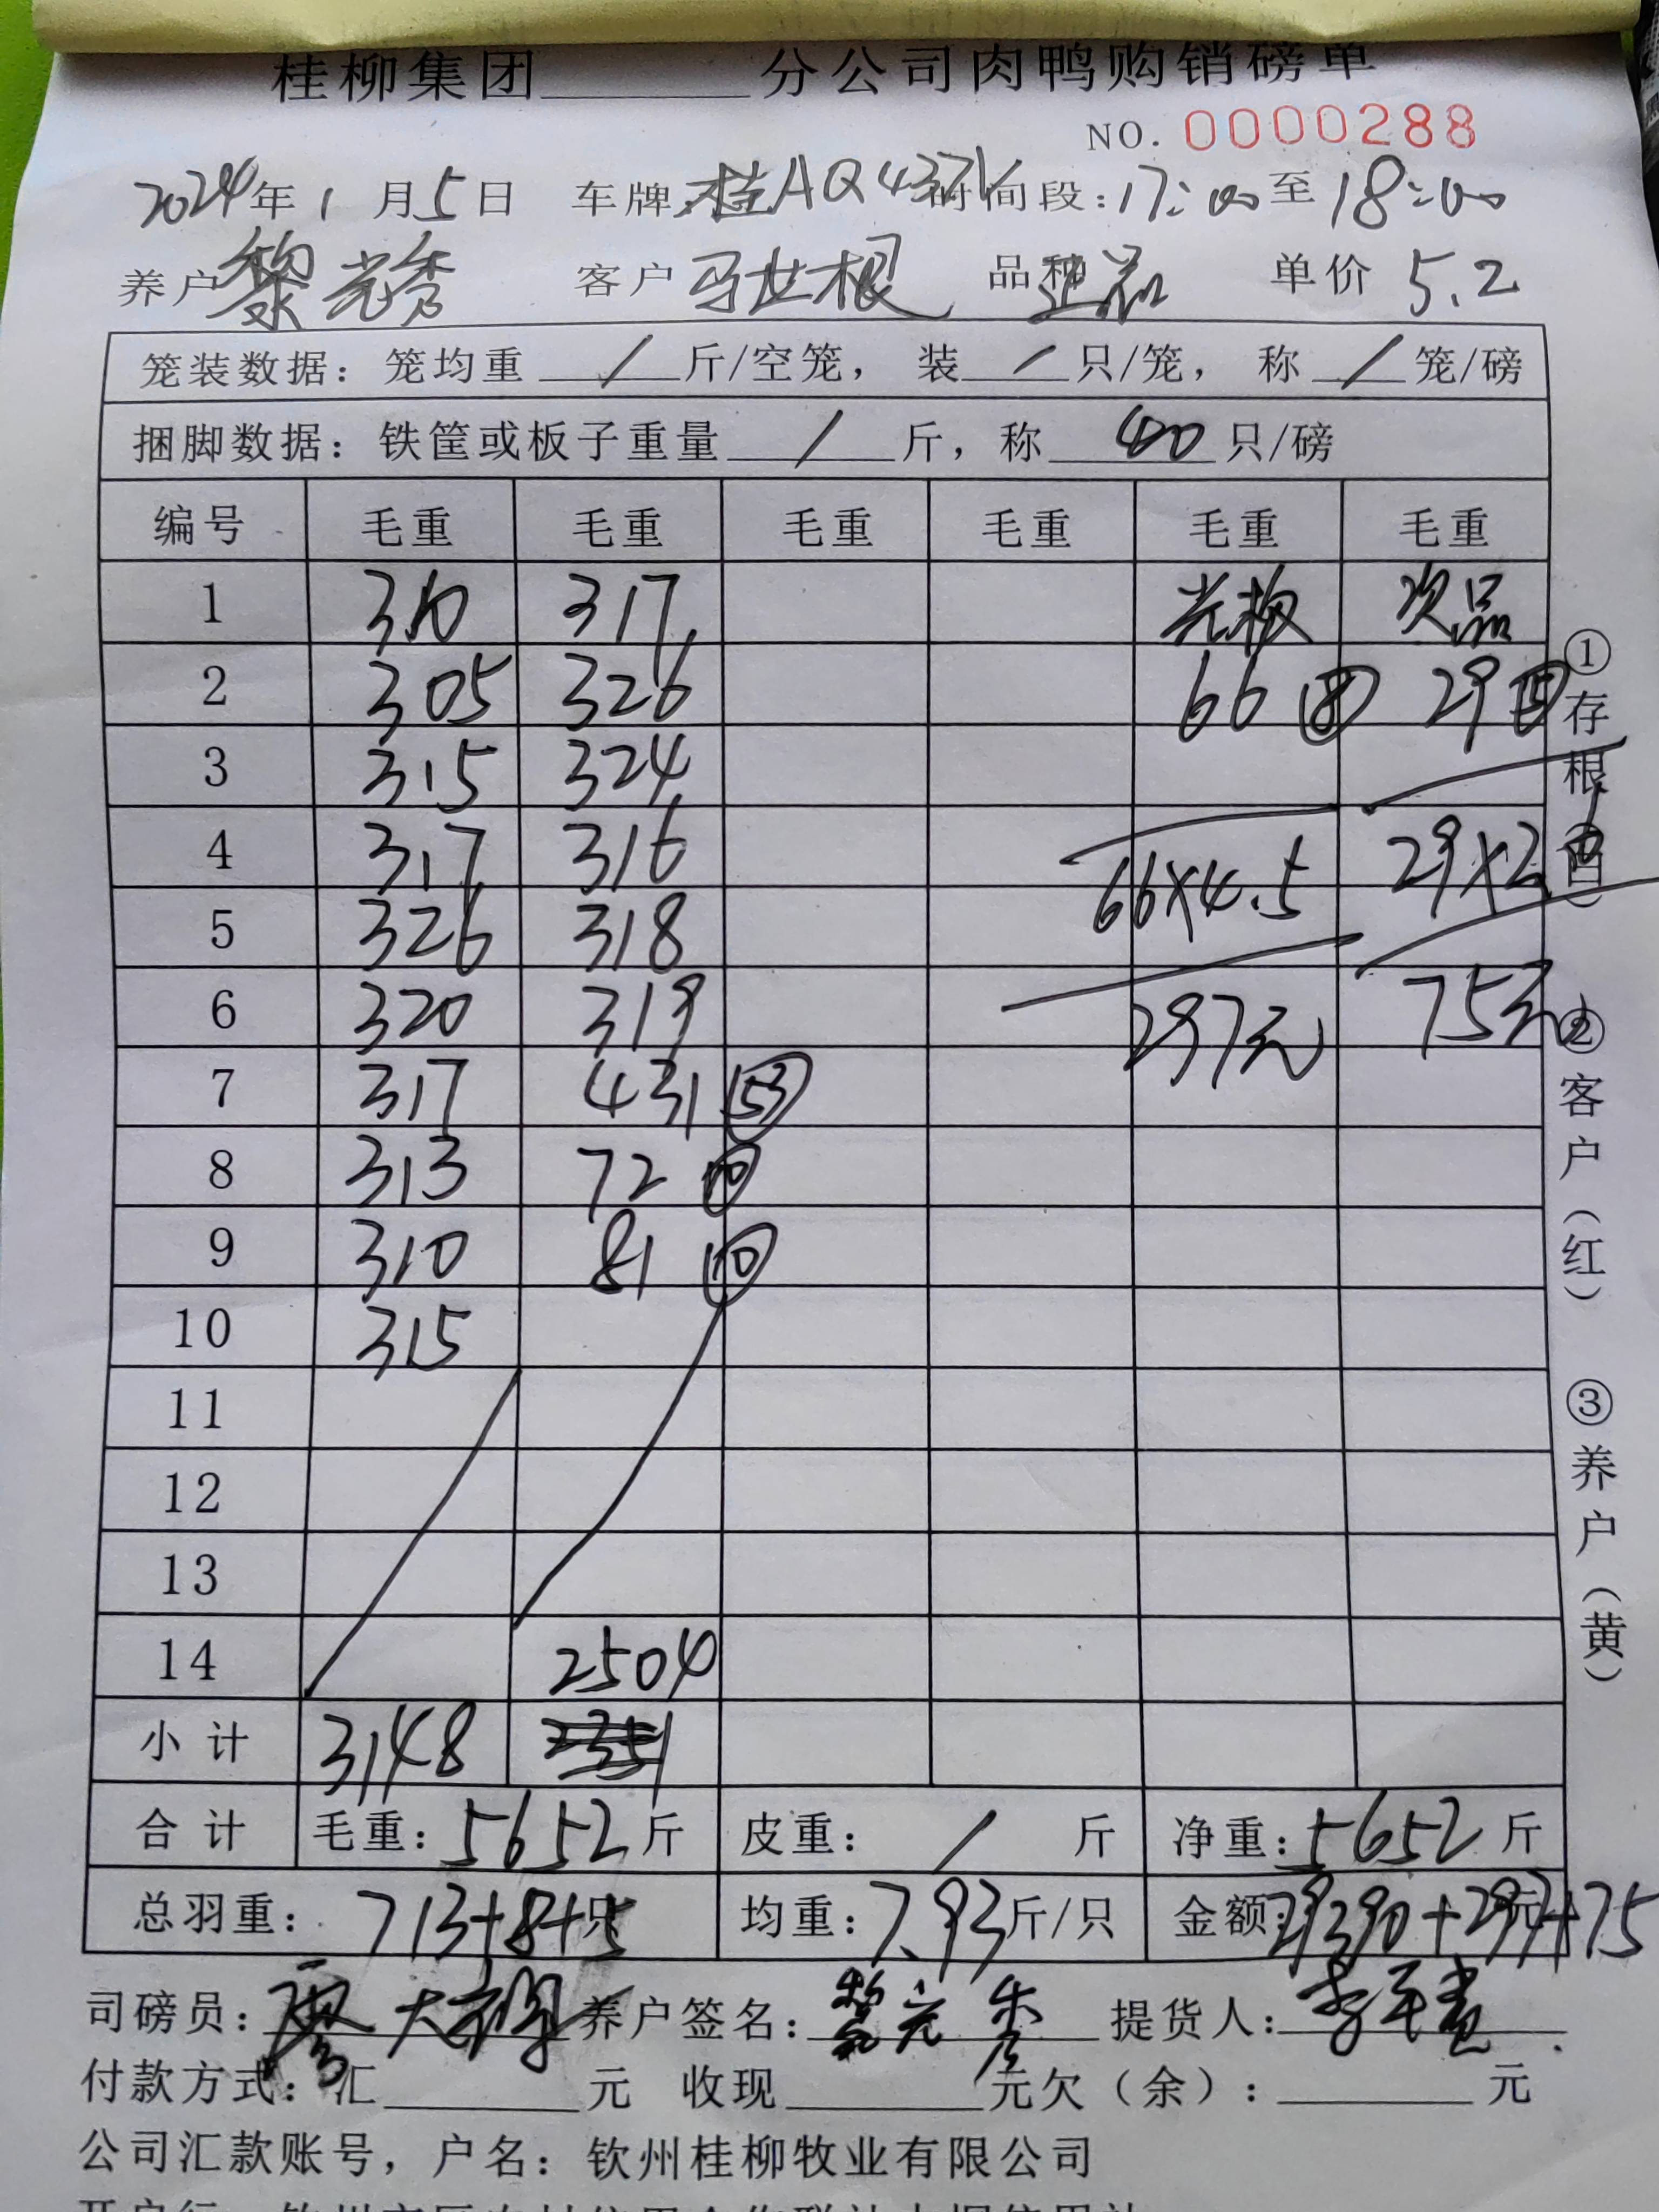 桂柳集团______分公司肉鸭购销磅单
NO. 0000288
2024年1月5日 车牌:桂AQ437 时间段:17:00至18:00
养户 黎光秀 客户 马世根 品种 单价 5.2
笼装数据:笼均重 / 斤/空笼, 装 / 只/笼, 称 / 笼/磅
捆脚数据:铁筐或板子重量 / 斤,称 40 只/磅
编号 毛重 毛重 毛重 毛重 毛重 毛重
1 310 317 光板 次品
2 305 326 66 ⑧ 29 ⑤
3 315 324
4 317 316 66×4.5 29×2.
5 326 318
6 320 319 297元 75元
7 317 431 (53)
8 313 72 ⑩
9 310 81 ⑩
10 315
11
12
13
14 2504
小计 3148
合计 毛重:5652斤 皮重: / 斤 净重:5652斤
总羽重:713+8+5只 均重:7.93斤/只 金额:29390+297+75元
司磅员:廖大 养户签名:黎光秀 提货人:李
付款方式:汇______元 收现______元欠(余):______元
公司汇款账号,户名:钦州桂柳牧业有限公司
①存根(白)
②客户(红)
③养户(黄)